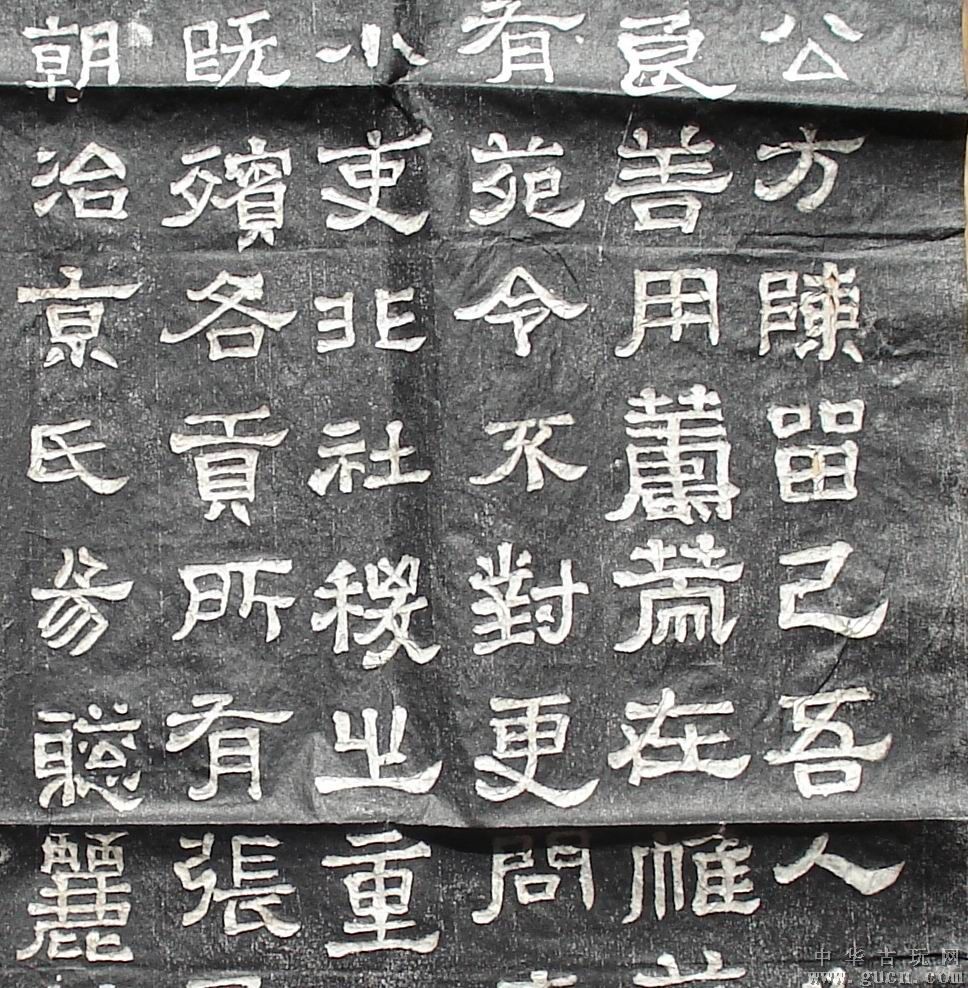 公方陳留己吾人
良善用籌策在帷
有苑令不對更問
小吏非社稷之重
既殯各貢所有張
朝治京氏易聰麗
中华古玩网
www.gucn.com